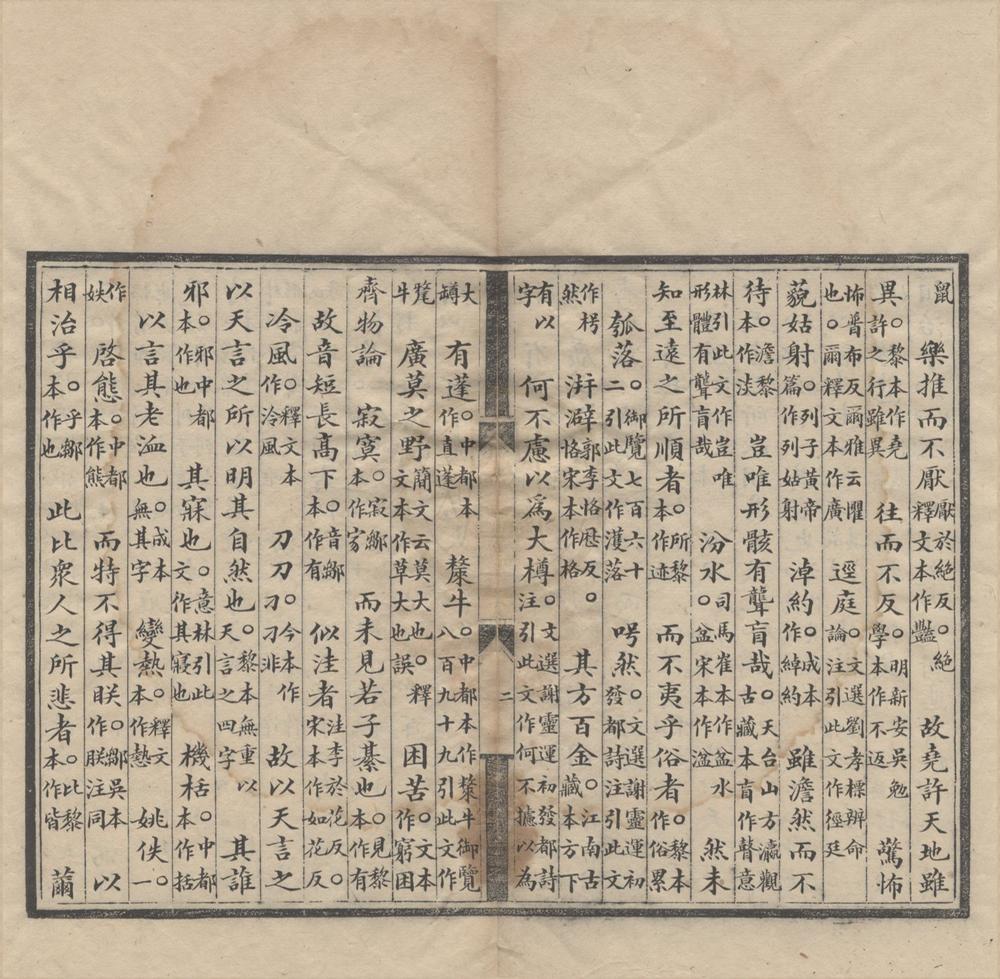 鼠　樂推而不厭厭於絶反。絶釋文本作豔　故堯許天地雖
異。黎本作堯許之行雖異　往而不反。明新安吳勉學本作不返　驚怖
怖普布反爾雅云懼也。爾釋文本作廣　逕庭。文選劉孝標辨命論注引此文作徑廷
藐姑射。列子黃帝篇作列姑射　淖約。成本作綽約　雖澹然而不
待。澹黎本作淡　豈唯形骸有聾盲哉。天台山方瀛觀古藏本盲作瞽意
林引此文作豈唯形體有聾盲哉　汾水。司馬崔本作盆水盆宋本作湓　然未
知至遠之所順者。所黎本作迹　而不夷乎俗者。黎本作俗累
瓠落。御覽七百六十二引此文作濩落　呺然。文選謝靈運初發都詩注引此文
作枵然　洴澼郭李恪歷反。恪宋本作格　其方百金。江南古藏本方下
有以字　何不慮以爲大樽。文選謝靈運初發都詩注引此文作何不攄以為
大罇　有蓬。中都本作直蓬　犛牛。中都本作㹈牛御覽八百九十九引此文作
氂牛　廣莫之野簡文云莫大也。釋文本作草大也誤　困苦。文本作窮困
齊物論　寂寞。寂鄒本作家　而未見若子綦也。見黎本作有
故音短長高下。音鄒本作有　似洼者洼李於花反。宋本作如花反
冷風。釋文本作泠風　刀刀。今本作刁刁非　故以天言之
以天言之所以明其自然也。黎本無重以天言之四字　其誰
邪。邪中都本作也　其寐也。意林引此文作其寢也　機栝。中都本作括
以言其老洫也。成本無其字　變熱。釋文本作㷼　姚佚一
作妷。　啓態。中都本作熊　而特不得其眹。鄒吳本作朕注同　以
相治乎。乎鄒本作也　此比眾人之所悲者。比黎本作皆　薾
二